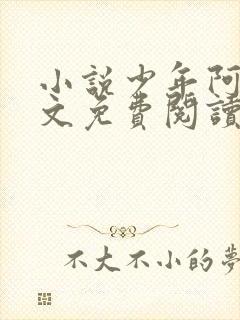 小說少年阿
文免費閱讀
不大不小的夢